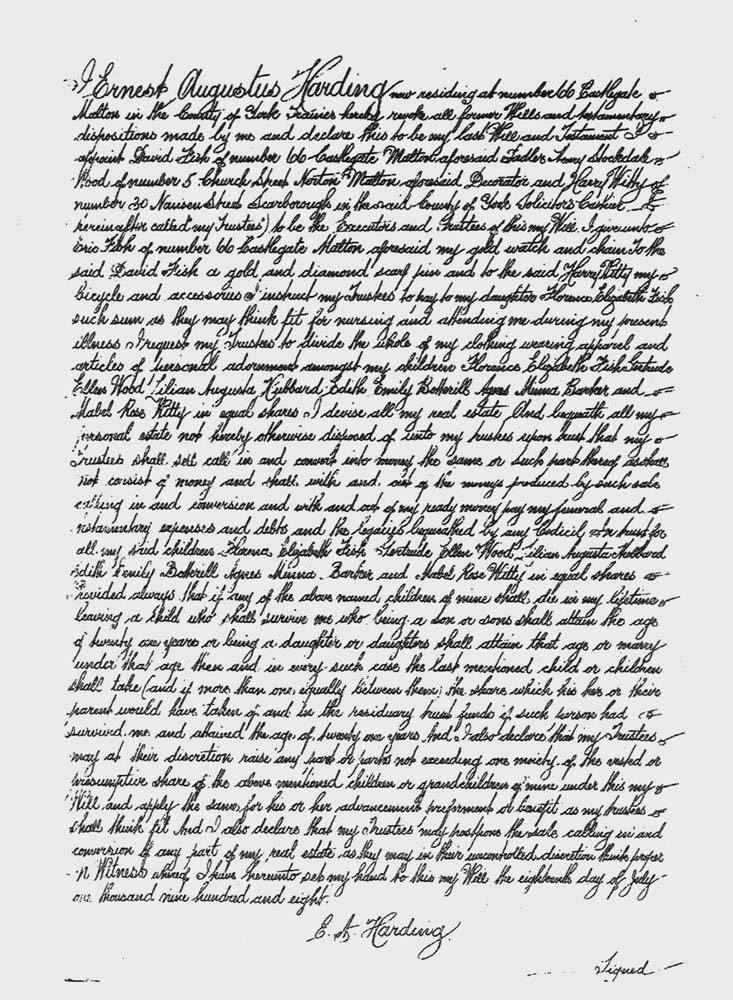 I Ernest Augustus Harding now residing at number 66 Castlegate
Malton in the County of York hereby revoke all former Wills and testamentary
dispositions made by me and declare this to be my last Will and Testament I
appoint David Fish of number 66 Castlegate Malton aforesaid Henry Stockdale
Wood of number 5 Church Street Norton Malton aforesaid Decorator and Harry Witty of
number 30 Nansen Street Scarborough in the said County of York Solicitors Cashier
(hereinafter called "my Trustees") to be the Executors and Trustees of this my Will I give unto
Eric Fish of number 66 Castlegate Malton aforesaid my gold watch and chain To the
said David Fish a gold and diamond scarf pin and to the said Harry Witty my
bicycle and accessories I instruct my Trustees to pay to my daughter Florence Elizabeth Fish
such sum as they may think fit for nursing and attending me during my present
illness I request my Trustees to divide the whole of my clothing wearing apparel and
articles of personal adornment amongst my children Florence Elizabeth Fish Gertrude
Ellen Wood Lilian Augusta Hubbard Edith Emily Botterill Agnes Minna Barker and
Mabel Rose Witty in equal shares I devise all my real estate And bequeath all my
personal estate not hereby otherwise disposed of unto my trustees upon trust that my
Trustees shall sell call in and convert into money the same or such part thereof as shall
not consist of money and shall with and out of the moneys produced by such sale
calling in and conversion and with and out of my ready money pay my funeral and
testamentary expenses and debts and the legacys bequeathed by any Codicil In trust for
all my said children Florence Elizabeth Fish Gertrude Ellen Wood Lilian Augusta Hubbard
Edith Emily Botterill Agnes Minna Barker and Mabel Rose Witty in equal shares
Provided always that if any of the above named children of mine shall die in my lifetime
leaving a child who shall survive me who being a son or sons shall attain the age
of twenty one years or being a daughter or daughters shall attain that age or marry
under that age then and in every such case the last mentioned child or children
shall take (and if more than one equally between them) the share which his her or their
parent would have taken of and in the residuary trust funds if such person had
survived me and attained the age of twenty one years And I also declare that my Trustees
may at their discretion raise any part or parts not exceeding one moiety of the vested or
presumptive share of the above mentioned children or grandchildren of mine under this my
Will and apply the same for his or her advancement preferment or benefit as my trustees
shall think fit And I also declare that my Trustees may postpone the sale calling in and
conversion of any part of my real estate as they may in their uncontrolled discretion think proper
In Witness whereof I have hereunto set my hand to this my Will the eighteenth day of July
one thousand nine hundred and eight.
E. A. Harding.
Signed